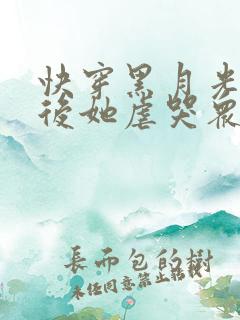 快穿黑月光
後她虐哭眾
長而包的樹
未任同意禁止轉載